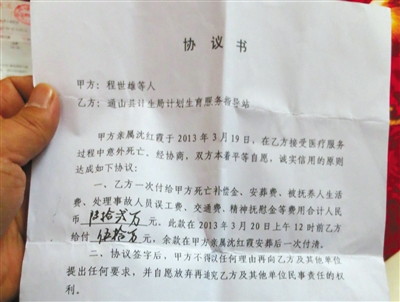 协议书
甲方：程世雄等人
乙方：通山县计生局计划生育服务指导站
甲方亲属沈红霞于2013年3月19日，在乙方接受医疗服务
过程中意外死亡、经协商，双方本着平等自愿，诚实信用的原则
达成如下协议：
一、乙方一次付给甲方死亡补偿金、安葬费、被抚养人生活
费、处理事故人员误工费、交通费、精神抚慰金等费用合计人民
币 万元，此款在2013年3月20日上午12时前乙方
给付伍拾万元，余款在甲方亲属沈红霞安葬后一次付清。
二、协议签字后、甲方不得以任何理由再向乙方及其他单位
提出任何要求，并自愿放弃再追究乙方及其他单位民事责任的权
利。